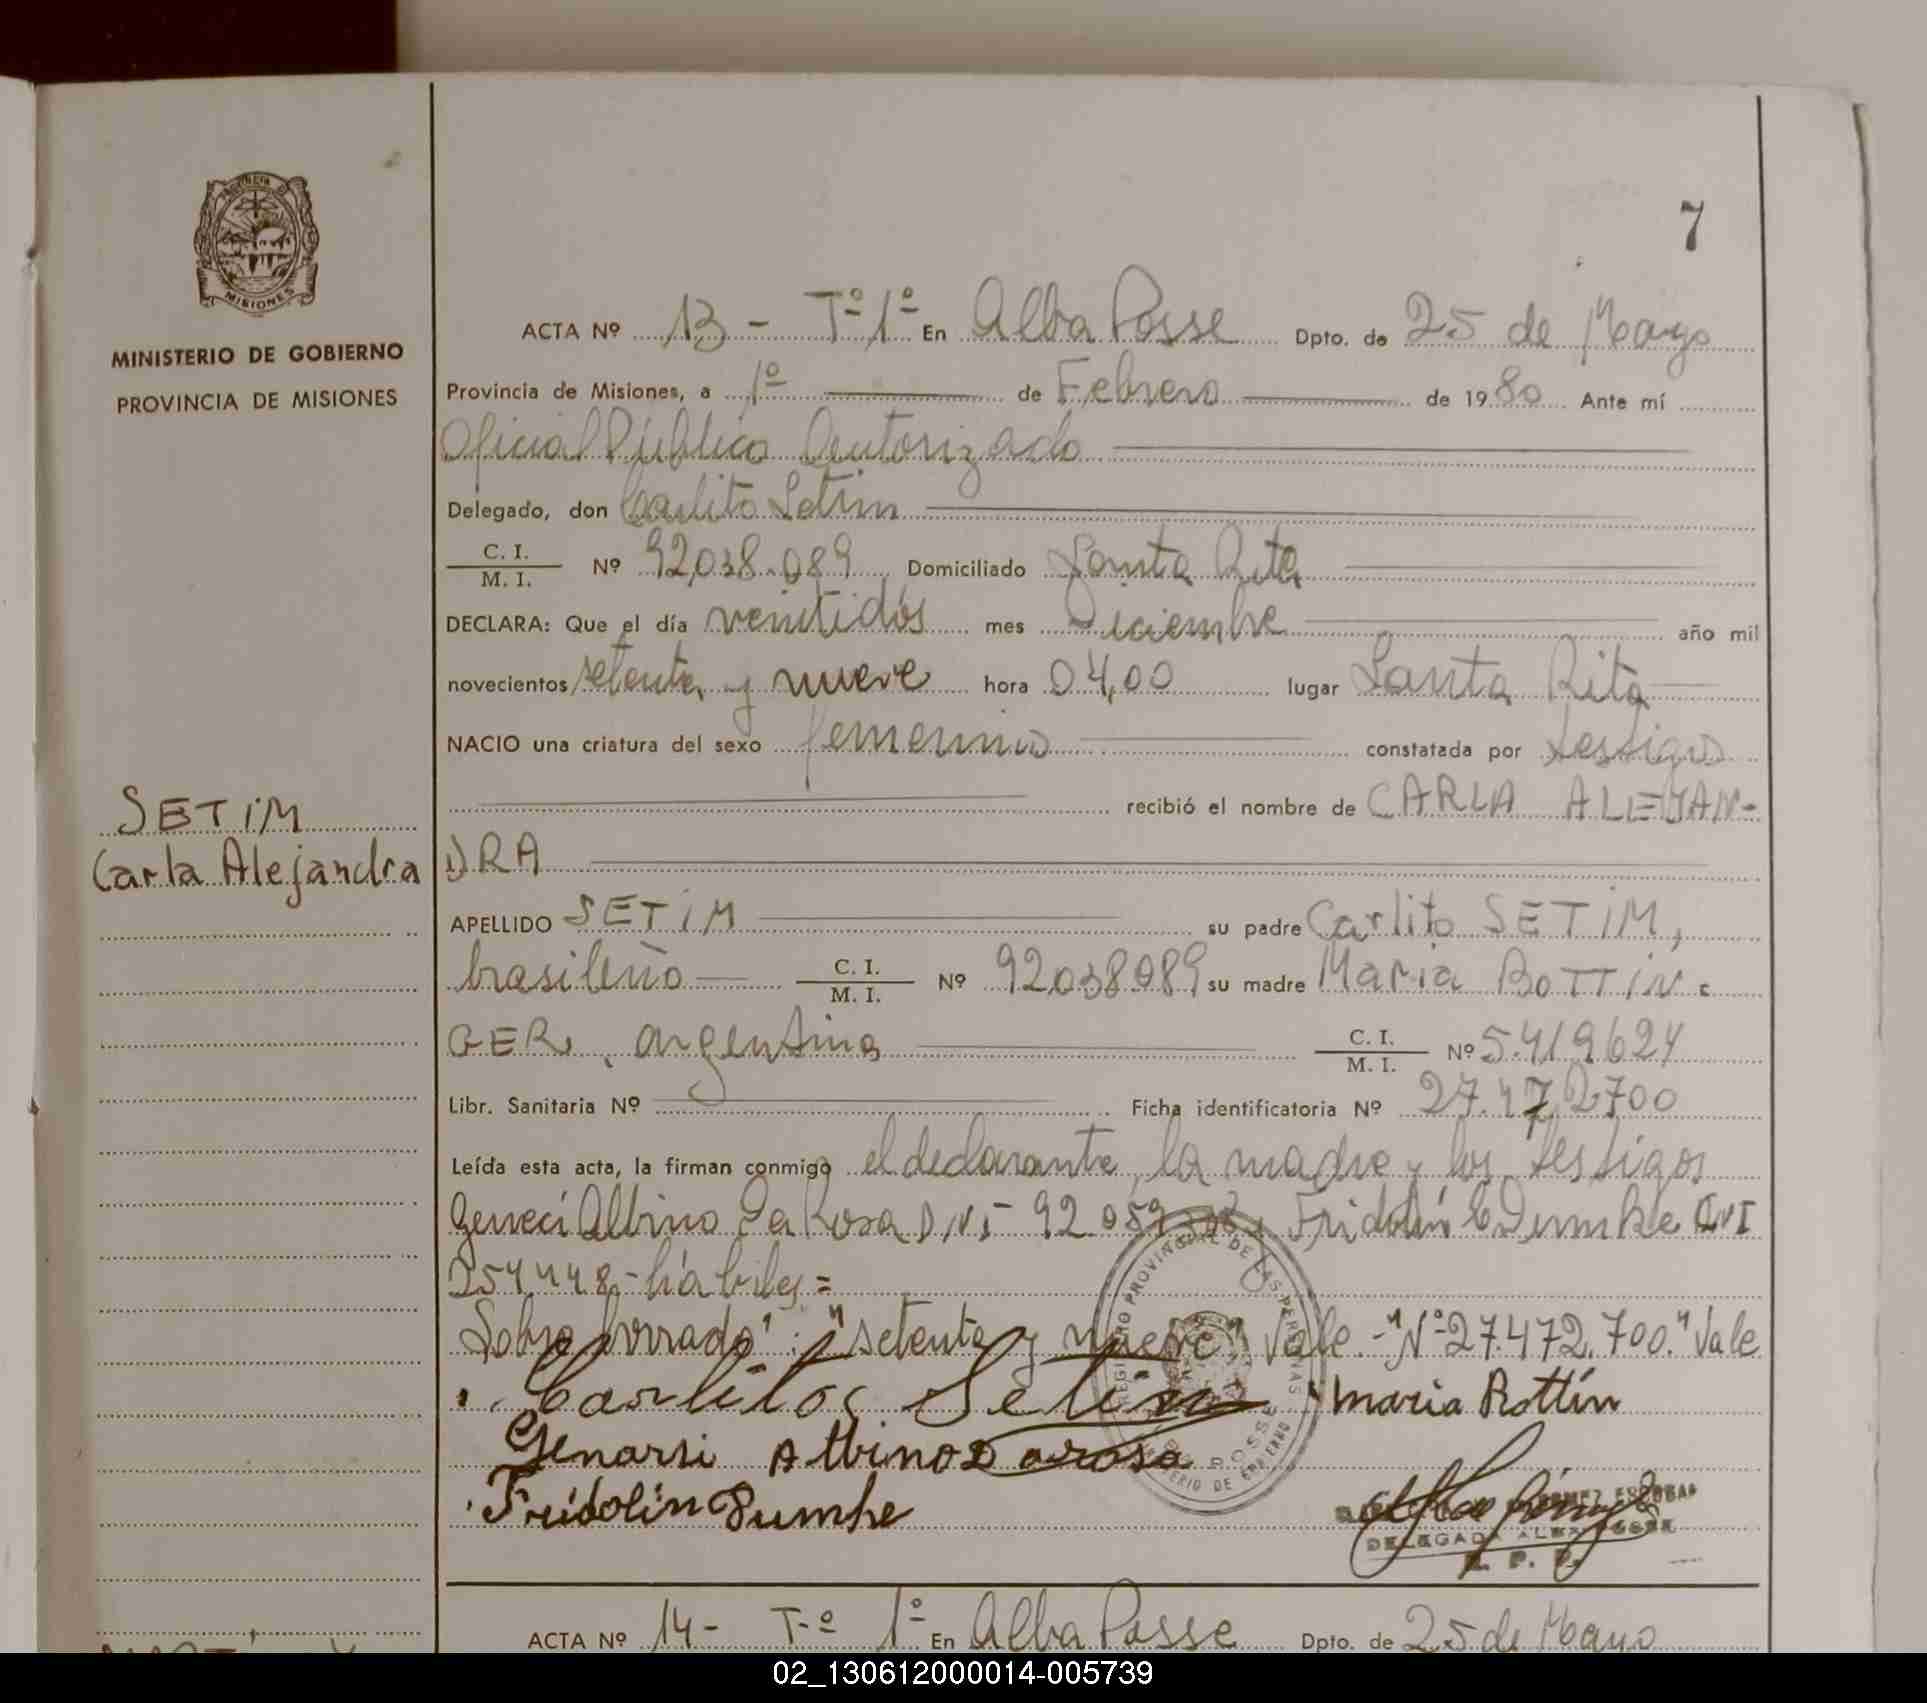 7
PROVINCIA DE
MISIONES
MINISTERIO DE GOBIERNO
PROVINCIA DE MISIONES
ACTA Nº 13 - Tº 1º En Alba Posse Dpto. de 25 de Mayo
Provincia de Misiones, a 1º de Febrero de 1980 Ante mí
Oficial Público Autorizado
Delegado, don Carlito Setim
C. I.
M. I. Nº 92,038.089 Domiciliado Santa Rita
DECLARA: Que el día veintidós mes Diciembre año mil
novecientos setenta y nueve hora 04,00 lugar Santa Rita
NACIO una criatura del sexo femenino constatada por testigos
recibió el nombre de CARLA ALEJAN-
DRA
SETIM
Carla Alejandra
APELLIDO SETIM su padre Carlito SETIM,
brasileño C. I.
M. I. Nº 92,038089 su madre Maria BOTTIN-
GER, argentina C. I.
M. I. Nº 5.419624
Libr. Sanitaria Nº Ficha identificatoria Nº 27.472700
Leída esta acta, la firman conmigo el declarante, la madre y los testigos
Geneci Albino Da Rosa D,N,I- 92.059 Fridolin Dumke
254448-hábiles=
Sobre borrado: "setenta y nueve" Vale.-"Nº-27.472.700." Vale
Carlitos Setim Maria Bottin
Genarsi Albino Darosa
Fridolin Dumke
REGISTRO PROVINCIAL DE LAS PERSONAS
POSSE
MINISTERIO DE GOBIERNO
DELEGADA ALBA POSSE
R. P. P.
ACTA Nº 14- T-º 1º En Alba Posse Dpto. de 25 de Mayo
02_130612000014-005739